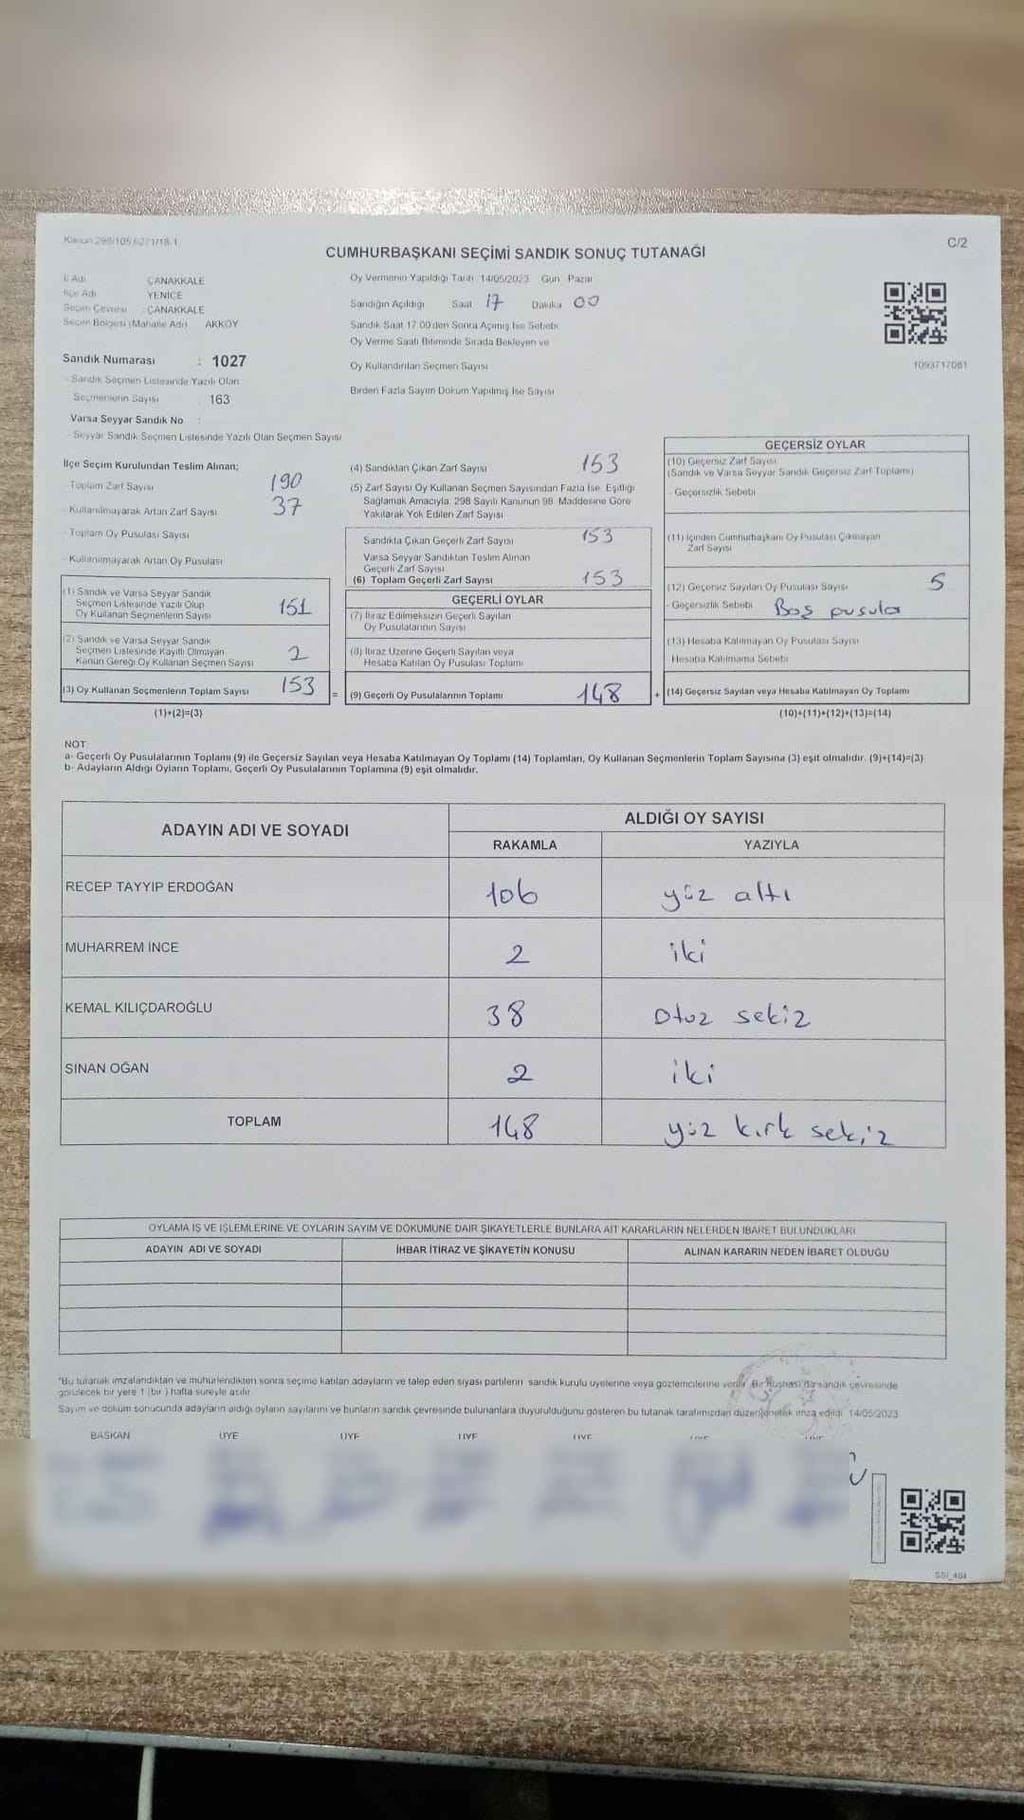 Kanun 298/105,6271/18.1
C/2
CUMHURBAŞKANI SEÇİMİ SANDIK SONUÇ TUTANAĞI
İl Adı ÇANAKKALE
İlçe Adı YENİCE
Seçim Çevresi ÇANAKKALE
Seçim Bölgesi (Mahalle Adı) AKKÖY
Oy Vermenin Yapıldığı Tarih 14/05/2023 Gün Pazar
Sandığın Açıldığı Saat 17 Dakika 00
Sandık Saat 17:00'den Sonra Açılmış İse Sebebi
Oy Verme Saati Bitiminde Sırada Bekleyen ve
Oy Kullandırılan Seçmen Sayısı
Birden Fazla Sayım Döküm Yapılmış İse Sayısı
1093717081
Sandık Numarası : 1027
- Sandık Seçmen Listesinde Yazılı Olan
Seçmenlerin Sayısı 163
Varsa Seyyar Sandık No :
- Seyyar Sandık Seçmen Listesinde Yazılı Olan Seçmen Sayısı
İlçe Seçim Kurulundan Teslim Alınan;
- Toplam Zarf Sayısı 190
- Kullanılmayarak Artan Zarf Sayısı 37
- Toplam Oy Pusulası Sayısı
- Kullanılmayarak Artan Oy Pusulası
(1) Sandık ve Varsa Seyyar Sandık
Seçmen Listesinde Yazılı Olup
Oy Kullanan Seçmenlerin Sayısı 151
(2) Sandık ve Varsa Seyyar Sandık
Seçmen Listesinde Kayıtlı Olmayan
Kanun Gereği Oy Kullanan Seçmen Sayısı 2
(3) Oy Kullanan Seçmenlerin Toplam Sayısı 153 =
(1)+(2)=(3)
(4) Sandıktan Çıkan Zarf Sayısı 153
(5) Zarf Sayısı Oy Kullanan Seçmen Sayısından Fazla İse, Eşitliği
Sağlamak Amacıyla, 298 Sayılı Kanunun 98. Maddesine Göre
Yakılarak Yok Edilen Zarf Sayısı
Sandıkta Çıkan Geçerli Zarf Sayısı 153
Varsa Seyyar Sandıktan Teslim Alınan
Geçerli Zarf Sayısı
(6) Toplam Geçerli Zarf Sayısı 153
GEÇERLİ OYLAR
(7) İtiraz Edilmeksizin Geçerli Sayılan
Oy Pusulalarının Sayısı
(8) İtiraz Üzerine Geçerli Sayılan veya
Hesaba Katılan Oy Pusulası Toplamı
(9) Geçerli Oy Pusulalarının Toplamı 148 +
GEÇERSİZ OYLAR
(10) Geçersiz Zarf Sayısı
(Sandık ve Varsa Seyyar Sandık Geçersiz Zarf Toplamı)
- Geçersizlik Sebebi
(11) İçinden Cumhurbaşkanı Oy Pusulası Çıkmayan
Zarf Sayısı
(12) Geçersiz Sayılan Oy Pusulası Sayısı 5
- Geçersizlik Sebebi Boş pusula
(13) Hesaba Katılmayan Oy Pusulası Sayısı
Hesaba Katılmama Sebebi
(14) Geçersiz Sayılan veya Hesaba Katılmayan Oy Toplamı
(10)+(11)+(12)+(13)=(14)
NOT
a- Geçerli Oy Pusulalarının Toplamı (9) ile Geçersiz Sayılan veya Hesaba Katılmayan Oy Toplamı (14) Toplamları, Oy Kullanan Seçmenlerin Toplam Sayısına (3) eşit olmalıdır. (9)+(14)=(3)
b- Adayların Aldığı Oyların Toplamı, Geçerli Oy Pusulalarının Toplamına (9) eşit olmalıdır.
ADAYIN ADI VE SOYADI ALDIĞI OY SAYISI
RAKAMLA YAZIYLA
RECEP TAYYİP ERDOĞAN 106 yüz altı
MUHARREM İNCE 2 iki
KEMAL KILIÇDAROĞLU 38 otuz sekiz
SİNAN OĞAN 2 iki
TOPLAM 148 yüz kırk sekiz
OYLAMA İŞ VE İŞLEMLERİNE VE OYLARIN SAYIM VE DÖKÜMÜNE DAİR ŞİKAYETLERLE BUNLARA AİT KARARLARIN NELERDEN İBARET BULUNDUKLARI
ADAYIN ADI VE SOYADI İHBAR İTİRAZ VE ŞİKAYETİN KONUSU ALINAN KARARIN NEDEN İBARET OLDUĞU
"Bu tutanak imzalandıktan ve mühürlendikten sonra seçime katılan adayların ve talep eden siyasi partilerin sandık kurulu üyelerine veya gözlemcilerine verilir. Bir nüshası da sandık çevresinde
görülecek bir yere 1 (bir) hafta süreyle asılır.
Sayım ve döküm sonucunda adayların aldığı oyların sayılarını ve bunların sandık çevresinde bulunanlara duyurulduğunu gösteren bu tutanak tarafımızdan düzenlenerek imza edildi. 14/05/2023
BAŞKAN ÜYE ÜYE ÜYE ÜYE